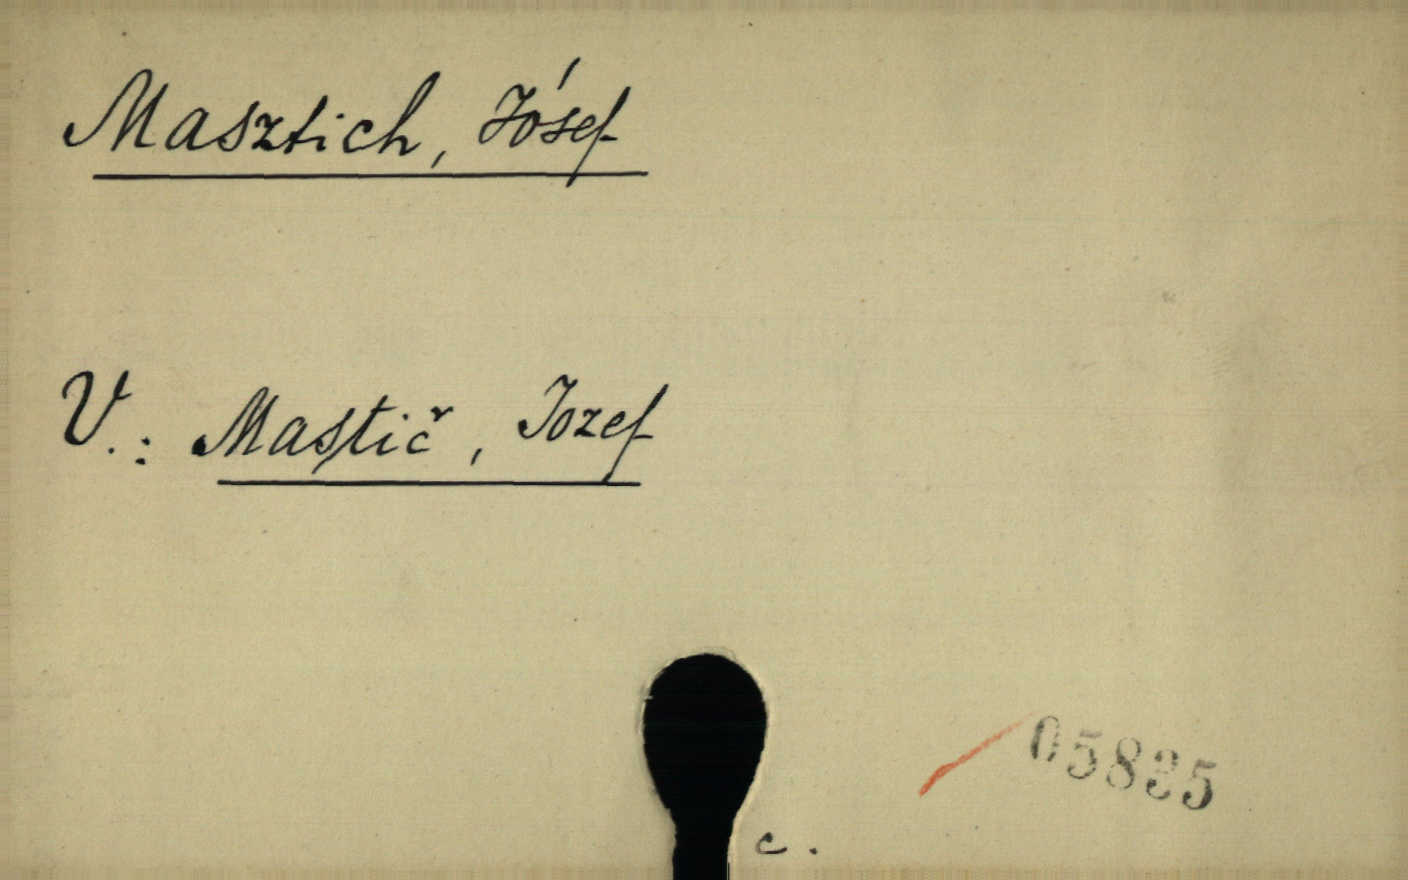 Masztich, Jósef
V.: Mastič, Jozef
05835
c.